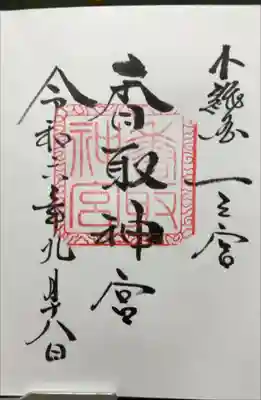 下総国 一之宮
香取神宮
香取神宮
令和六年九月十八日